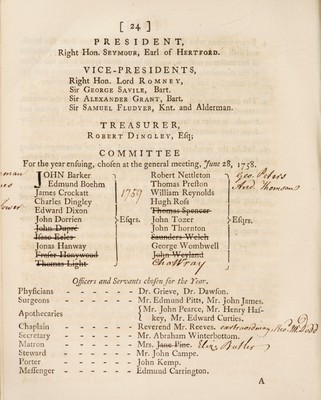 [ 24 ]
PRESIDENT,
Right Hon. SEYMOUR, Earl of HERTFORD.
VICE-PRESIDENTS,
Right Hon. Lord ROMNEY,
Sir GEORGE SAVILE, Bart.
Sir ALEXANDER GRANT, Bart.
Sir SAMUEL FLUDYER, Knt. and Alderman.
TREASURER,
ROBERT DINGLEY, Esq;
COMMITTEE
For the year ensuing, chosen at the general meeting, June 28, 1758.
JOHN Barker
Edmund Boehm
James Crockatt
Charles Dingley
Edward Dixon
John Dorrien
John Dupré
Isaac Eeles
Jonas Hanway
Fraser Honywood
Thomas Light
Esqrs.
1759
Robert Nettleton
Thomas Preston
William Reynolds
Hugh Ross
Thomas Spencer
John Tozer
John Thornton
Saunders Welch
George Wombwell
John Weyland
Cha Wray
Esqrs.
Geo. Peters
And. Thomson
Officers and Servants chosen for the Year.
Physicians - - - - - - Dr. Grieve, Dr. Dawson.
Surgeons - - - - - - Mr. Edmund Pitts, Mr. John James.
Apothecaries - - - - - - { Mr. John Pearce, Mr. Henry Has-
key, Mr. Edward Curties.
Chaplain - - - - - - Reverend Mr. Reeves. extraordinary, Revd. Mr. Dodd
Secretary - - - - - - Mr. Abraham Winterbottom.
Matron - - - - - - Mrs. Jane Pine. Eliz. Butler
Steward - - - - - - Mr. John Campe.
Porter - - - - - - John Kemp.
Messenger - - - - - - Edmund Carrington.
A